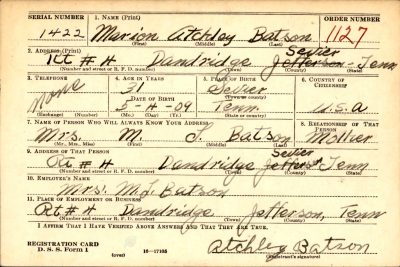 SERIAL NUMBER 1. NAME (Print) ORDER NUMBER
1422 Marion Atchley Batson 1127
(First) (Middle) (Last)
2. ADDRESS (Print) Sevier
Rt # 4 Dandridge Jefferson Tenn
(Number and street or R. F. D. number) (Town) (County) (State)
3. TELEPHONE 4. AGE IN YEARS 5. PLACE OF BIRTH 6. COUNTRY OF CITIZENSHIP
None 31 Sevier
DATE OF BIRTH (Town or county)
5-4-09 Tenn U.S.A
(Exchange) (Number) (Mo.) (Day) (Yr.) (State or country)
7. NAME OF PERSON WHO WILL ALWAYS KNOW YOUR ADDRESS 8. RELATIONSHIP OF THAT PERSON
Mrs. M. J. Batson Mother
(Mr., Mrs., Miss) (First) (Middle) (Last)
9. ADDRESS OF THAT PERSON Sevier
Rt # 4 Dandridge Jefferson Tenn
(Number and street or R. F. D. number) (Town) (County) (State)
10. EMPLOYER'S NAME
Mrs. M.J. Batson
11. PLACE OF EMPLOYMENT OR BUSINESS
Rt # 4 Dandridge Jefferson, Tenn
(Number and street or R. F. D. number) (Town) (County) (State)
I AFFIRM THAT I HAVE VERIFIED ABOVE ANSWERS AND THAT THEY ARE TRUE.
REGISTRATION CARD
D. S. S. Form 1 (over) 16-17105 Atchley Batson
(Registrant's signature)